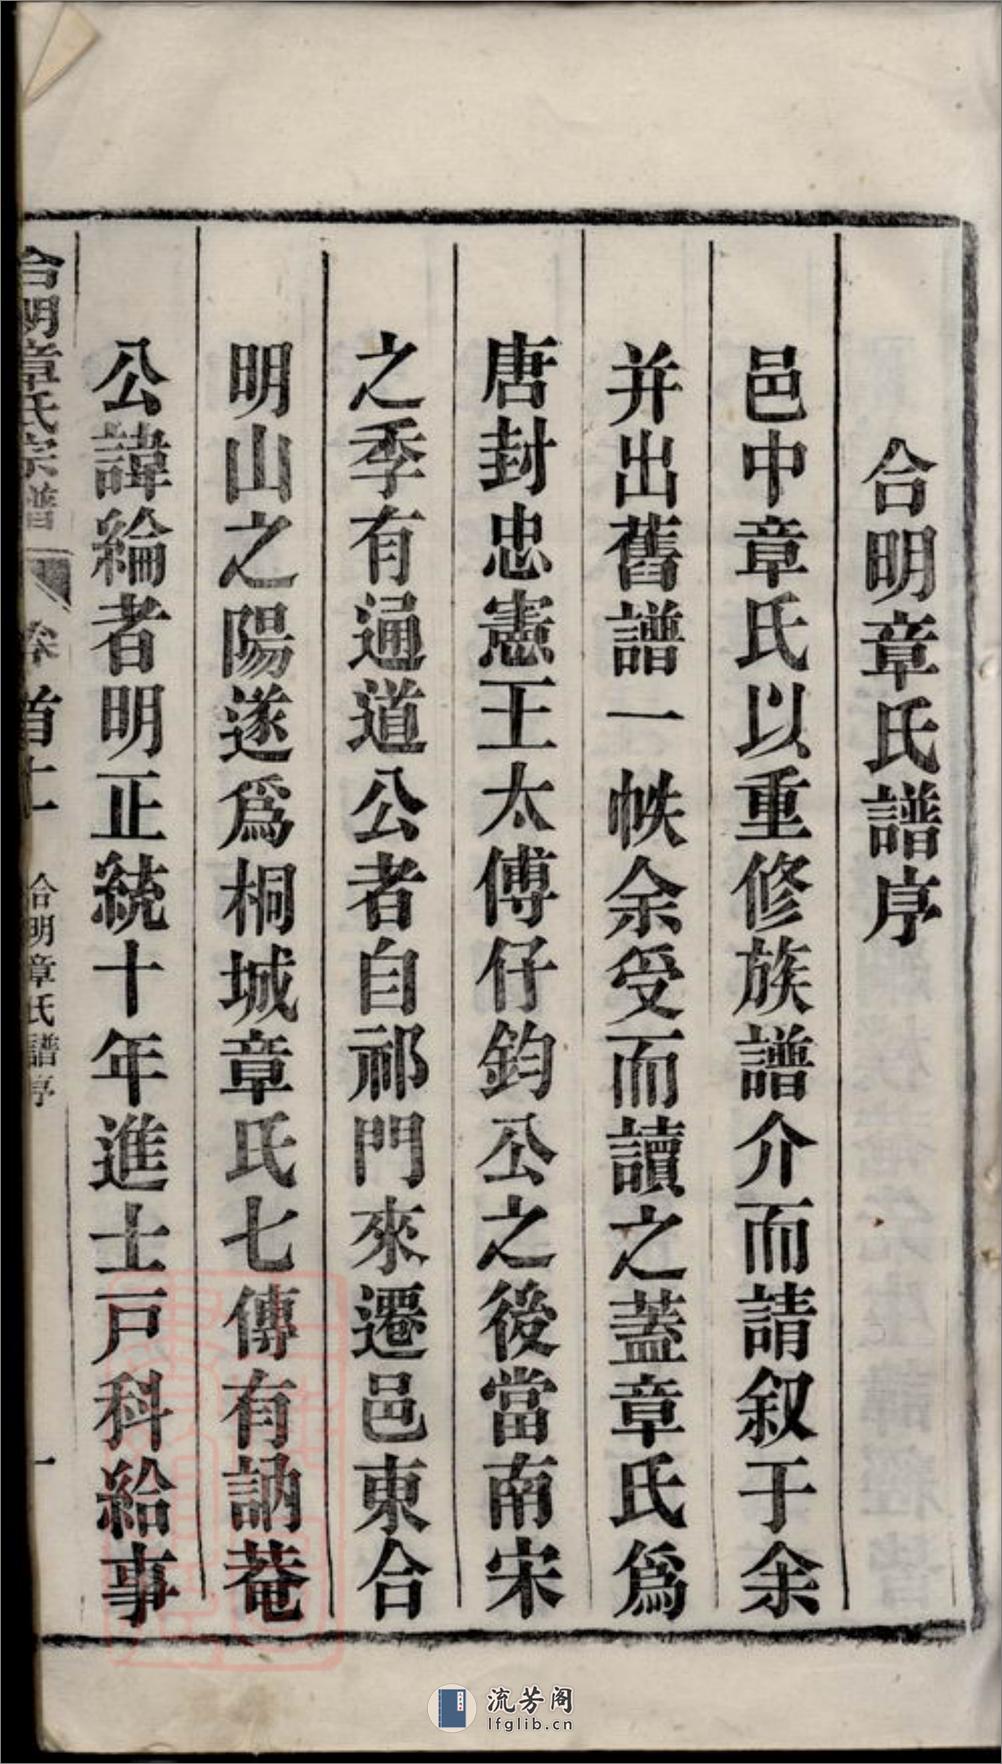 合明章氏譜序
邑中章氏以重修族譜介而請叙于余
并出舊譜一帙余受而讀之蓋章氏爲
唐封忠憲王太傅仔鈞公之後當南宋
之季有通道公者自祁門來遷邑東合
明山之陽遂爲桐城章氏七傳有訥菴
公諱綸者明正統十年進士戸科給事
合明章氏宗譜
卷首上
合明章氏譜序
一
流芳阁
lfglib.cn